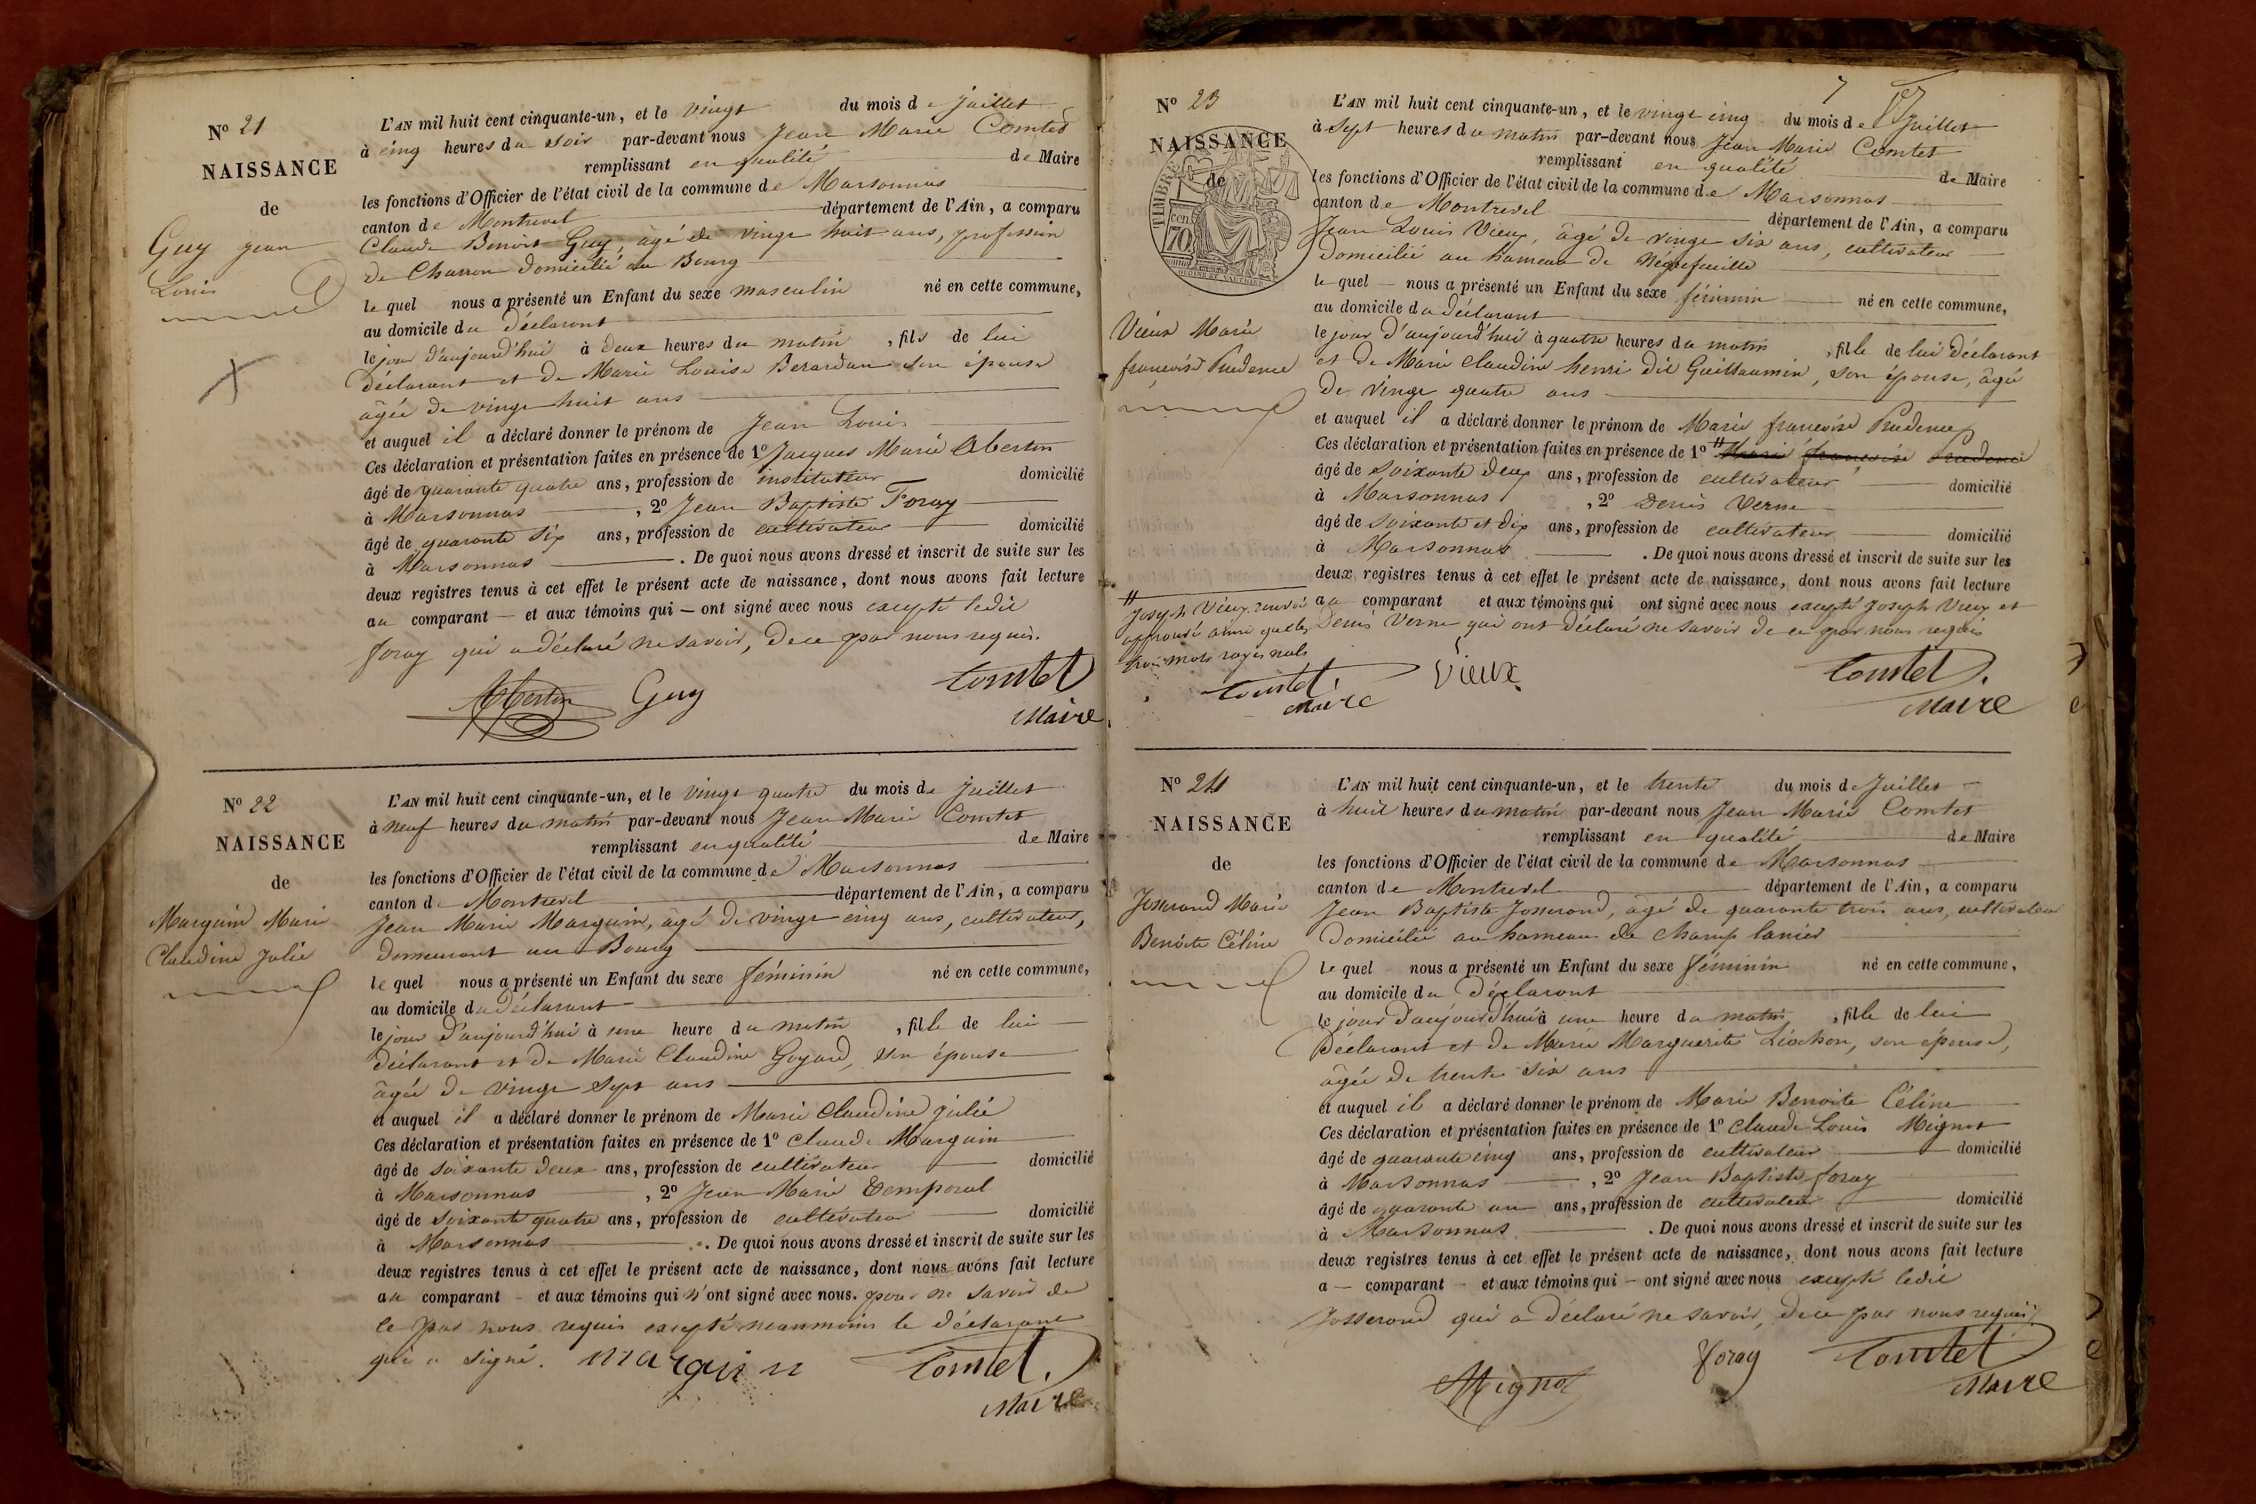 N° 21
NAISSANCE
de
Guy Jean
Louis
L'AN mil huit cent cinquante-un, et le vingt du mois de Juillet
à cinq heures du soir par-devant nous Jean Marie Comtet
remplissant en qualité de Maire
les fonctions d'Officier de l'état civil de la commune de Marsonnas
canton de Montrevel département de l'Ain, a comparu
Claude Benoit Guy, âgé de vingt huit ans, profession
de Charron domicilié au Bourg
le quel nous a présenté un Enfant du sexe masculin né en cette commune,
au domicile du déclarant
le jour d'aujourd'hui à deux heures du matin, fils de lui
déclarant et de Marie Louise Berardan son épouse
âgée de vingt huit ans
et auquel il a déclaré donner le prénom de Jean Louis
Ces déclaration et présentation faites en présence de 1° Jacques Marie Abertin
âgé de quarante quatre ans, profession de instituteur domicilié
à Marsonnas, 2° Jean Baptiste Foray
âgé de quarante six ans, profession de cultivateur domicilié
à Marsonnas. De quoi nous avons dressé et inscrit de suite sur les
deux registres tenus à cet effet le présent acte de naissance, dont nous avons fait lecture
au comparant et aux témoins qui ont signé avec nous excepté ledit
foray qui a déclaré ne savoir, de ce par nous requis.
Abertin Guy Comtet
Maire
N° 22
NAISSANCE
de
Marguin Marie
Claudine Julie
L'AN mil huit cent cinquante-un, et le vingt quatre du mois de Juillet
à neuf heures du matin par-devant nous Jean Marie Comtet
remplissant en qualité de Maire
les fonctions d'Officier de l'état civil de la commune de Marsonnas
canton de Montrevel département de l'Ain, a comparu
Jean Marie Marguin, âgé de vingt cinq ans, cultivateur,
demeurant au Bourg
le quel nous a présenté un Enfant du sexe féminin né en cette commune,
au domicile du déclarant
le jour d'aujourd'hui à une heure du matin, fille de lui
déclarant et de Marie Claudine Goyard, son épouse
âgée de vingt sept ans
et auquel il a déclaré donner le prénom de Marie Claudine julie
Ces déclaration et présentation faites en présence de 1° Claude Marguin
âgé de soixante deux ans, profession de cultivateur domicilié
à Marsonnas, 2° Jean Marie Temporal
âgé de soixante quatre ans, profession de cultivateur domicilié
à Marsonnas. De quoi nous avons dressé et inscrit de suite sur les
deux registres tenus à cet effet le présent acte de naissance, dont nous avons fait lecture
au comparant et aux témoins qui n'ont signé avec nous. pour ne savoir de
ce par nous requis excepté néanmoins le déclarant
qui a signé. marguin Comtet.
Maire
7
N° 23
NAISSANCE
de
TIMBRE
70
Vieux Marie
françoise Prudence
L'AN mil huit cent cinquante-un, et le vingt cinq du mois de Juillet
à sept heures du matin par-devant nous Jean Marie Comtet
remplissant en qualité de Maire
les fonctions d'Officier de l'état civil de la commune de Marsonnas
canton de Montrevel département de l'Ain, a comparu
Jean Louis Vieux, âgé de vingt six ans, cultivateur
domicilié au hameau de Négrefeuille
le quel nous a présenté un Enfant du sexe féminin né en cette commune,
au domicile du déclarant
le jour d'aujourd'hui à quatre heures du matin, fille de lui déclarant
et de Marie Claudine henri dit Guillaumin, son épouse, âgée
de vingt quatre ans
et auquel il a déclaré donner le prénom de Marie françoise Prudence
Ces déclaration et présentation faites en présence de 1° # Marie françoise Prudence
âgé de soixante deux ans, profession de cultivateur domicilié
à Marsonnas, 2° Denis Verne
âgé de soixante et dix ans, profession de cultivateur domicilié
à Marsonnas. De quoi nous avons dressé et inscrit de suite sur les
deux registres tenus à cet effet le présent acte de naissance, dont nous avons fait lecture
au comparant et aux témoins qui ont signé avec nous excepté Joseph Vieux et
Denis Verne qui ont déclaré ne savoir de ce par nous requis
# Joseph Vieux, renvoi
approuvé ainsi que les
trois mots rayés nuls
Comtet,
Maire
Vieux
Comtet.
Maire
N° 24
NAISSANCE
de
Josserand Marie
Benoite Céline
L'AN mil huit cent cinquante-un, et le trente du mois de Juillet
à huit heures du matin par-devant nous Jean Marie Comtet
remplissant en qualité de Maire
les fonctions d'Officier de l'état civil de la commune de Marsonnas
canton de Montrevel département de l'Ain, a comparu
Jean Baptiste Josserand, âgé de quarante trois ans, cultivateur
domicilié au hameau de Champ lanier
le quel nous a présenté un Enfant du sexe féminin né en cette commune,
au domicile du déclarant
le jour d'aujourd'hui à une heure du matin, fille de lui
déclarant et de Marie Marguerite Liochon, son épouse,
âgée de trente six ans
et auquel il a déclaré donner le prénom de Marie Benoite Céline
Ces déclaration et présentation faites en présence de 1° Claude Louis Mignot
âgé de quarante cinq ans, profession de cultivateur domicilié
à Marsonnas, 2° Jean Baptiste foray
âgé de quarante un ans, profession de cultivateur domicilié
à Marsonnas. De quoi nous avons dressé et inscrit de suite sur les
deux registres tenus à cet effet le présent acte de naissance, dont nous avons fait lecture
a comparant et aux témoins qui ont signé avec nous excepté ledit
Josserand qui a déclaré ne savoir, de ce par nous requis.
Mignot foray Comtet
Maire